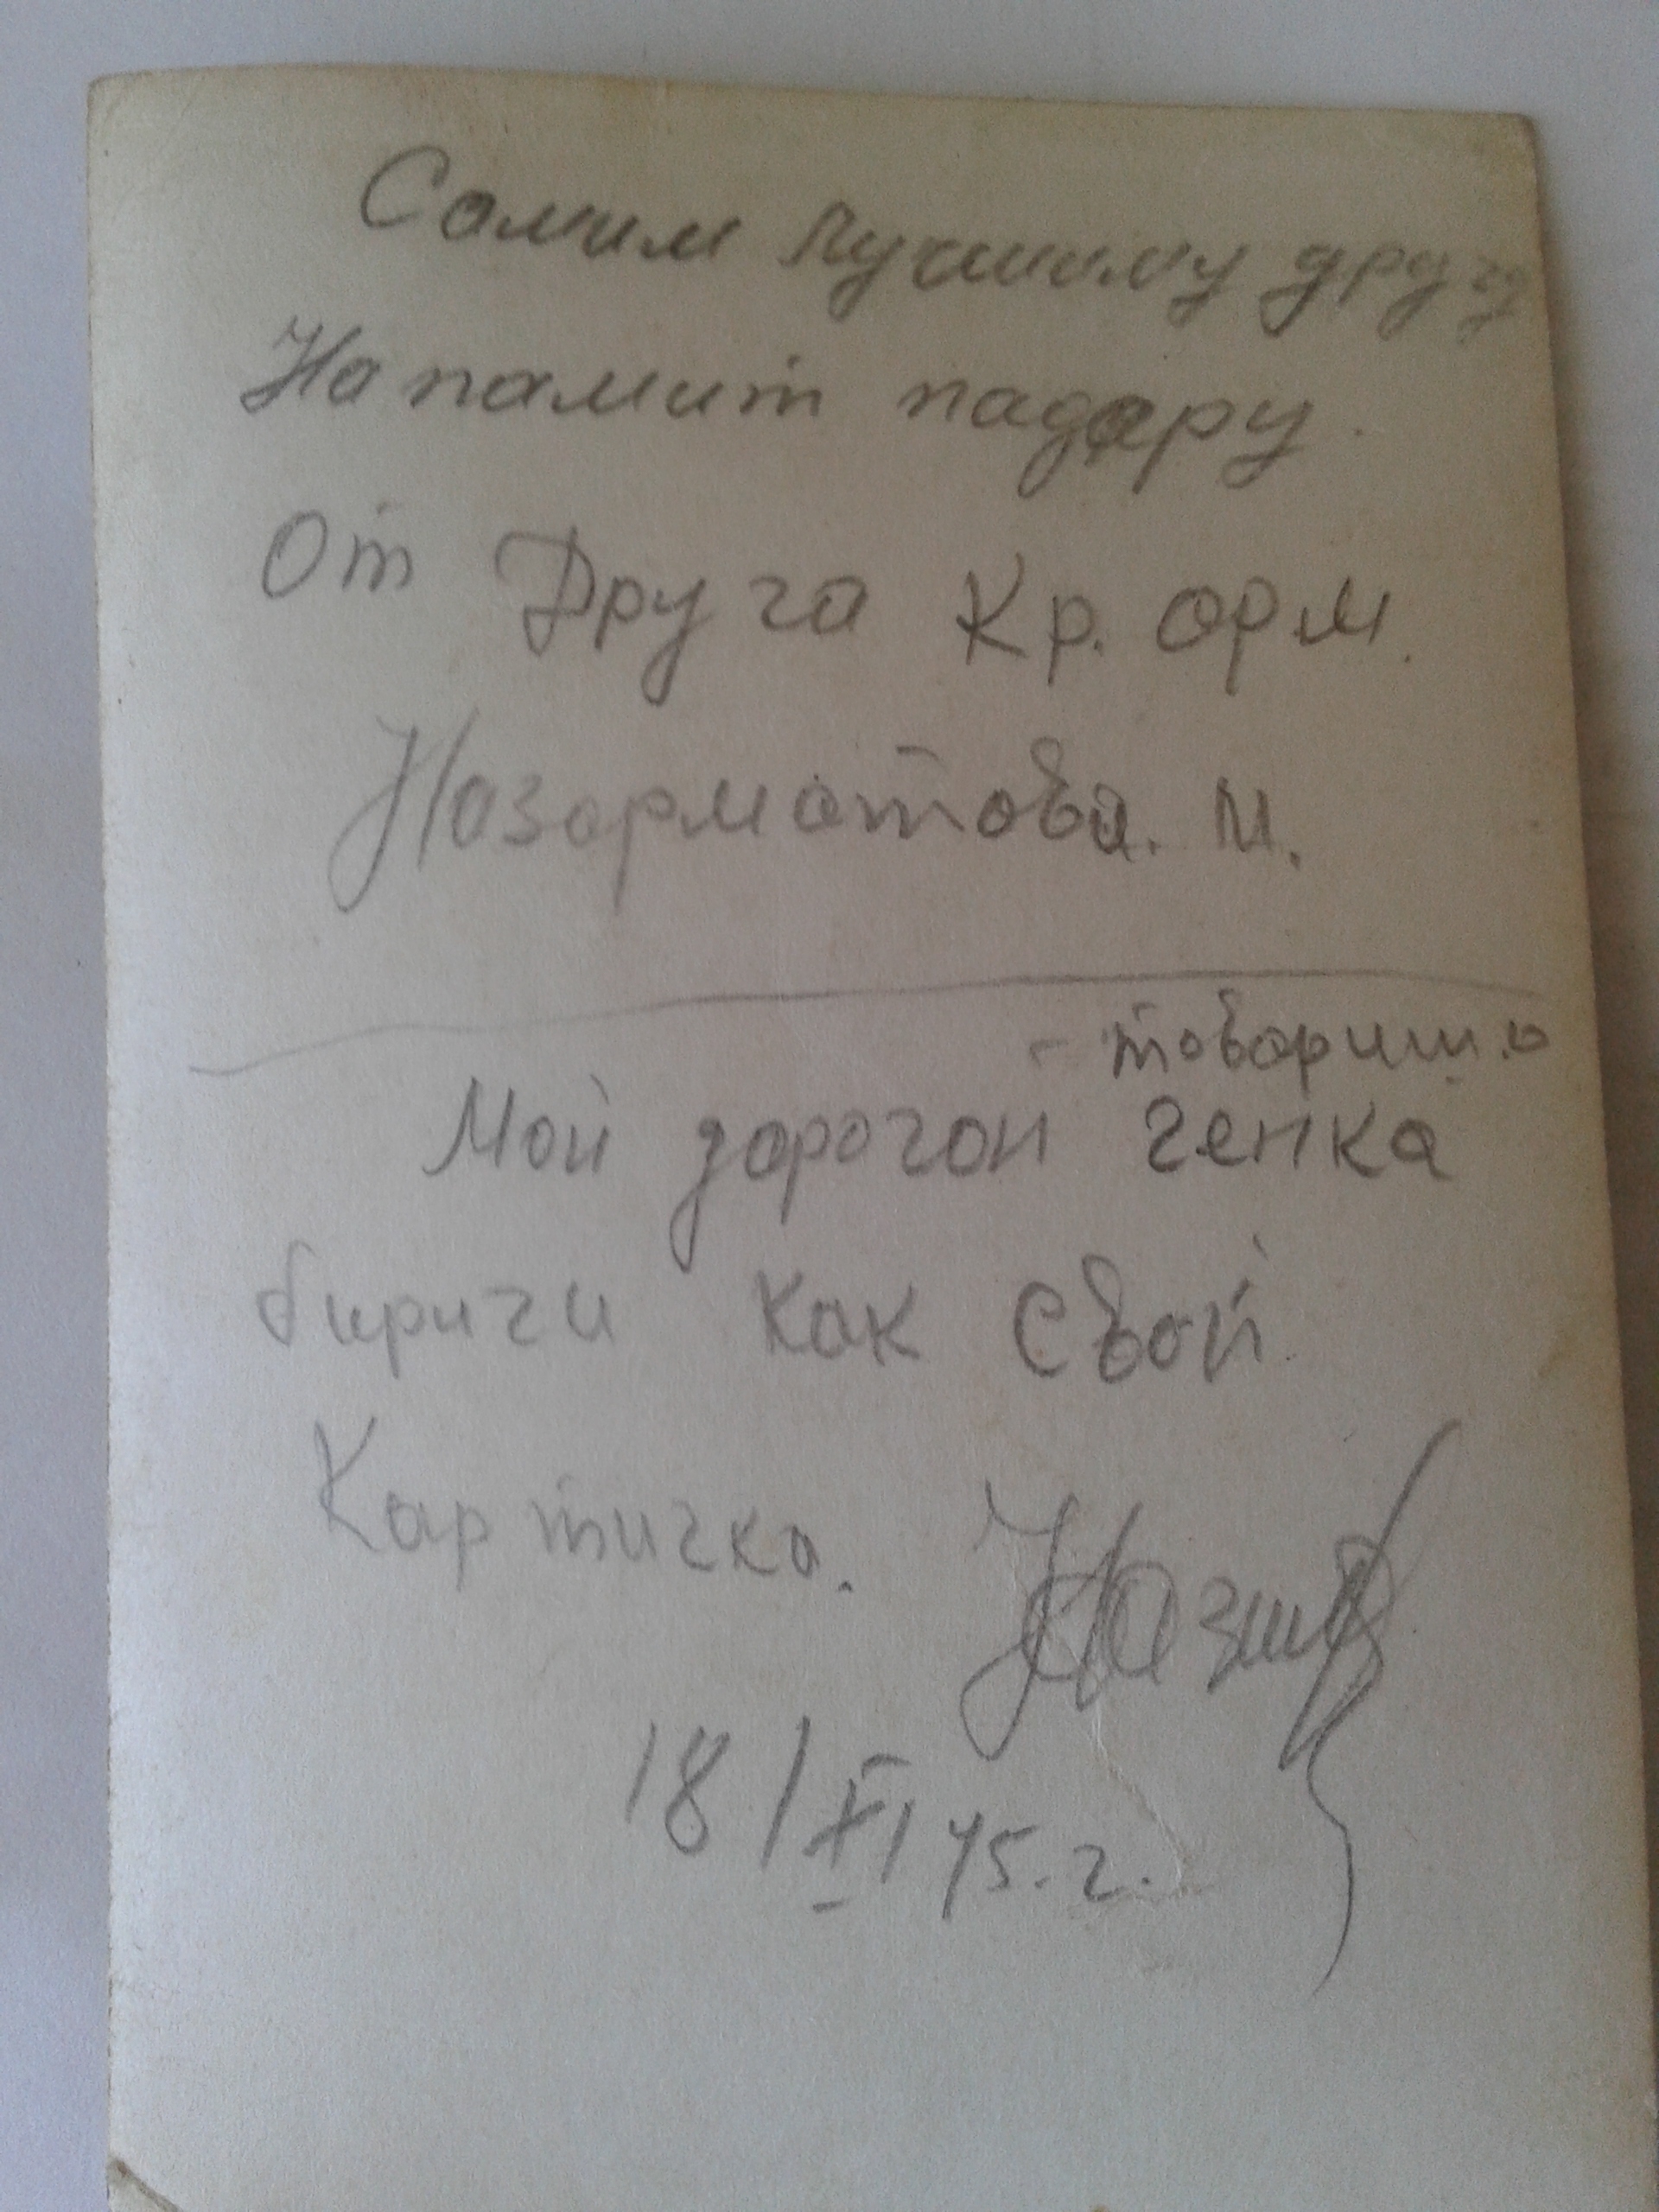 Самим лучшиму другу
На памит падару.
От Друга Кр. арм.
Назарматова. М.
- товарищ.а
Мой дорогой генка
бириги как свой
Картичка. Назир
18/XI 45.г.